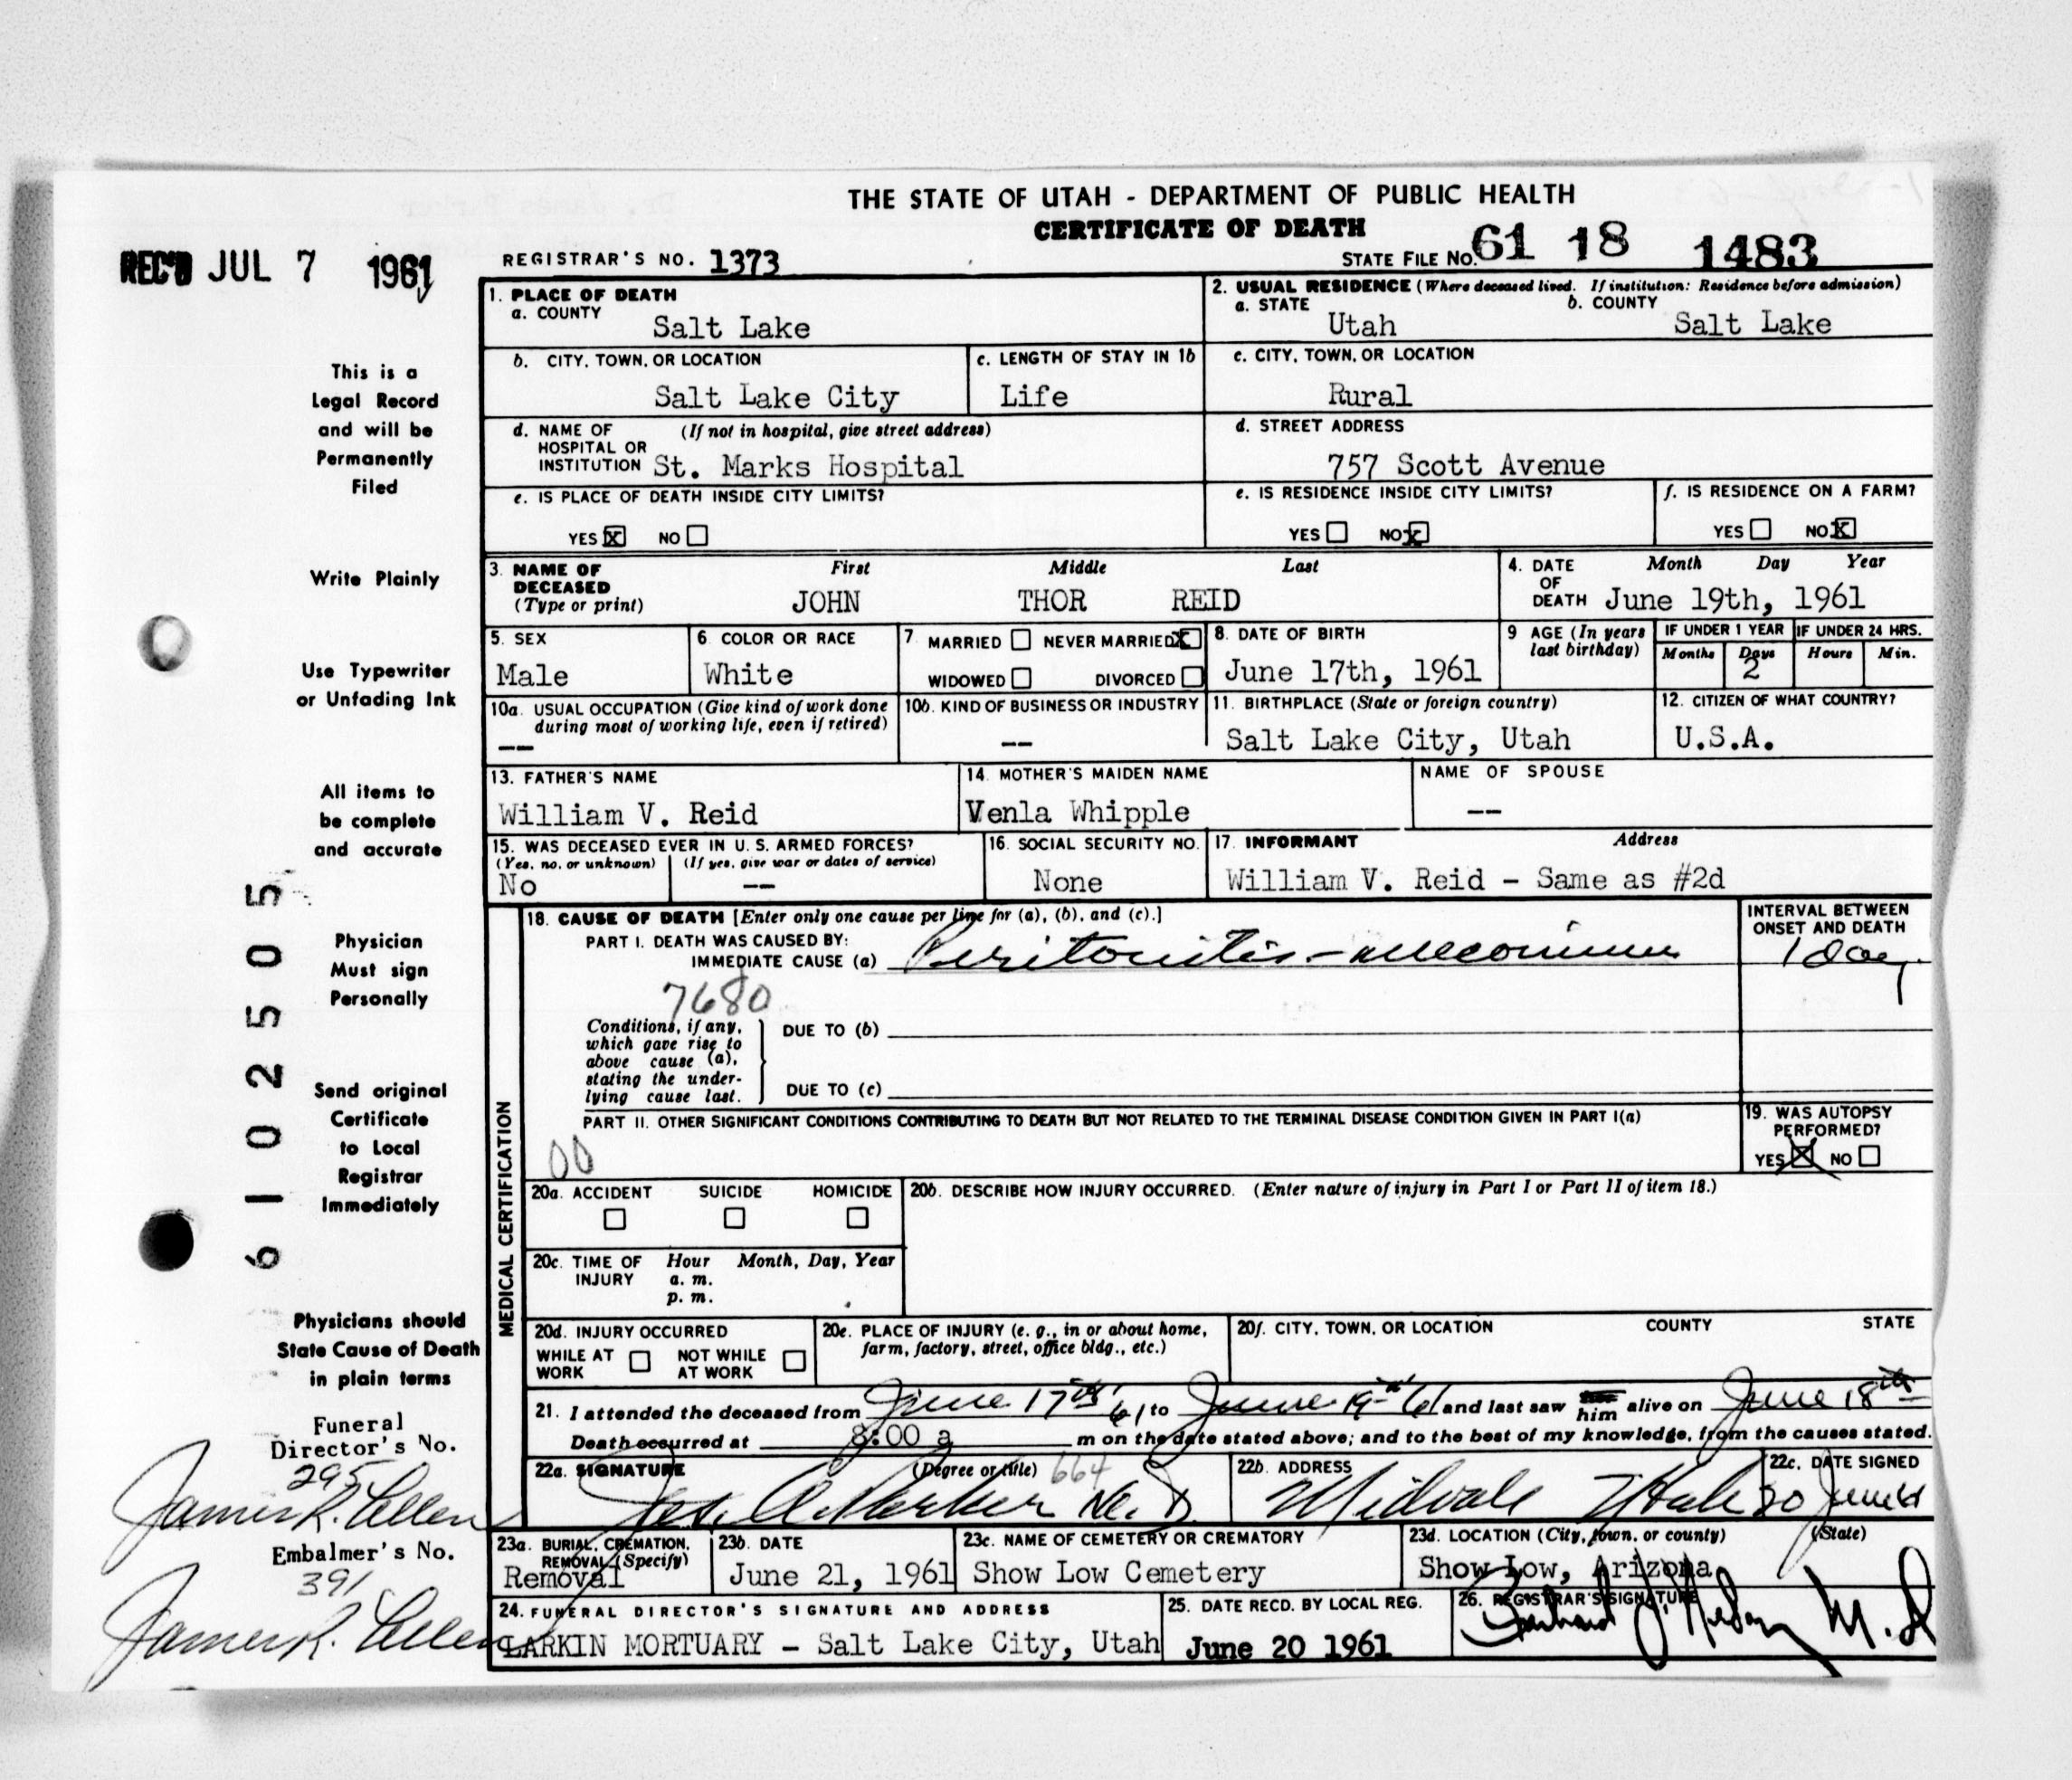 THE STATE OF UTAH - DEPARTMENT OF PUBLIC HEALTH
CERTIFICATE OF DEATH
REC'D JUL 7 1961
REGISTRAR'S NO. 1373
STATE FILE NO. 61 18 1483
This is a
Legal Record
and will be
Permanently
Filed
Write Plainly
Use Typewriter
or Unfading Ink
All items to
be complete
and accurate
Physician
Must sign
Personally
Send original
Certificate
to Local
Registrar
Immediately
Physicians should
State Cause of Death
in plain terms
Funeral
Director's No.
295
James R. Allen
Embalmer's No.
391
James R. Allen
61 02505
1. PLACE OF DEATH
a. COUNTY
Salt Lake
2. USUAL RESIDENCE (Where deceased lived. If institution: Residence before admission)
a. STATE b. COUNTY
Utah Salt Lake
b. CITY, TOWN, OR LOCATION
Salt Lake City
c. LENGTH OF STAY IN 1b
Life
c. CITY, TOWN, OR LOCATION
Rural
d. NAME OF (If not in hospital, give street address)
HOSPITAL OR
INSTITUTION St. Marks Hospital
d. STREET ADDRESS
757 Scott Avenue
e. IS PLACE OF DEATH INSIDE CITY LIMITS?
YES X NO
e. IS RESIDENCE INSIDE CITY LIMITS?
YES NO X
f. IS RESIDENCE ON A FARM?
YES NO X
3. NAME OF First Middle Last
DECEASED
(Type or print) JOHN THOR REID
4. DATE Month Day Year
OF
DEATH June 19th, 1961
5. SEX
Male
6. COLOR OR RACE
White
7. MARRIED NEVER MARRIED X
WIDOWED DIVORCED
8. DATE OF BIRTH
June 17th, 1961
9 AGE (In years
last birthday)
IF UNDER 1 YEAR IF UNDER 24 HRS.
Months Days Hours Min.
2
10a. USUAL OCCUPATION (Give kind of work done
during most of working life, even if retired)
--
10b. KIND OF BUSINESS OR INDUSTRY
--
11. BIRTHPLACE (State or foreign country)
Salt Lake City, Utah
12. CITIZEN OF WHAT COUNTRY?
U.S.A.
13. FATHER'S NAME
William V. Reid
14. MOTHER'S MAIDEN NAME
Venla Whipple
NAME OF SPOUSE
--
15. WAS DECEASED EVER IN U. S. ARMED FORCES?
(Yes, no, or unknown) (If yes, give war or dates of service)
No --
16. SOCIAL SECURITY NO.
None
17. INFORMANT Address
William V. Reid - Same as #2d
MEDICAL CERTIFICATION
18. CAUSE OF DEATH [Enter only one cause per line for (a), (b), and (c).]
PART I. DEATH WAS CAUSED BY:
IMMEDIATE CAUSE (a) Peritonitis - meconium
INTERVAL BETWEEN
ONSET AND DEATH
1 day
7680
Conditions, if any,
which gave rise to
above cause (a),
stating the under-
lying cause last.
DUE TO (b)
DUE TO (c)
PART II. OTHER SIGNIFICANT CONDITIONS CONTRIBUTING TO DEATH BUT NOT RELATED TO THE TERMINAL DISEASE CONDITION GIVEN IN PART I(a)
00
19. WAS AUTOPSY
PERFORMED?
YES X NO
20a. ACCIDENT SUICIDE HOMICIDE
20b. DESCRIBE HOW INJURY OCCURRED. (Enter nature of injury in Part I or Part II of item 18.)
20c. TIME OF Hour Month, Day, Year
INJURY a. m.
p. m.
20d. INJURY OCCURRED
WHILE AT WORK NOT WHILE AT WORK
20e. PLACE OF INJURY (e. g., in or about home,
farm, factory, street, office bldg., etc.)
20f. CITY, TOWN, OR LOCATION COUNTY STATE
21. I attended the deceased from June 17th 61 to June 19th 61 and last saw him alive on June 18th
Death occurred at 8:00 a m on the date stated above; and to the best of my knowledge, from the causes stated.
22a. SIGNATURE (Degree or title) 664
Jas. A. Parker M. D.
22b. ADDRESS
Midvale Utah
22c. DATE SIGNED
20 June 61
23a. BURIAL, CREMATION,
REMOVAL (Specify)
Removal
23b. DATE
June 21, 1961
23c. NAME OF CEMETERY OR CREMATORY
Show Low Cemetery
23d. LOCATION (City, town, or county) (State)
Show Low, Arizona
24. FUNERAL DIRECTOR'S SIGNATURE AND ADDRESS
LARKIN MORTUARY - Salt Lake City, Utah
25. DATE RECD. BY LOCAL REG.
June 20 1961
26. REGISTRAR'S SIGNATURE
M.D